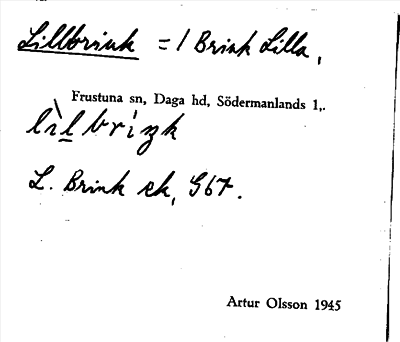 Lillbrink = / Brink Lilla,
Frustuna sn, Daga hd, Södermanlands l,.
lìl briŋk
L. Brink ek, G67.
Artur Olsson 1945